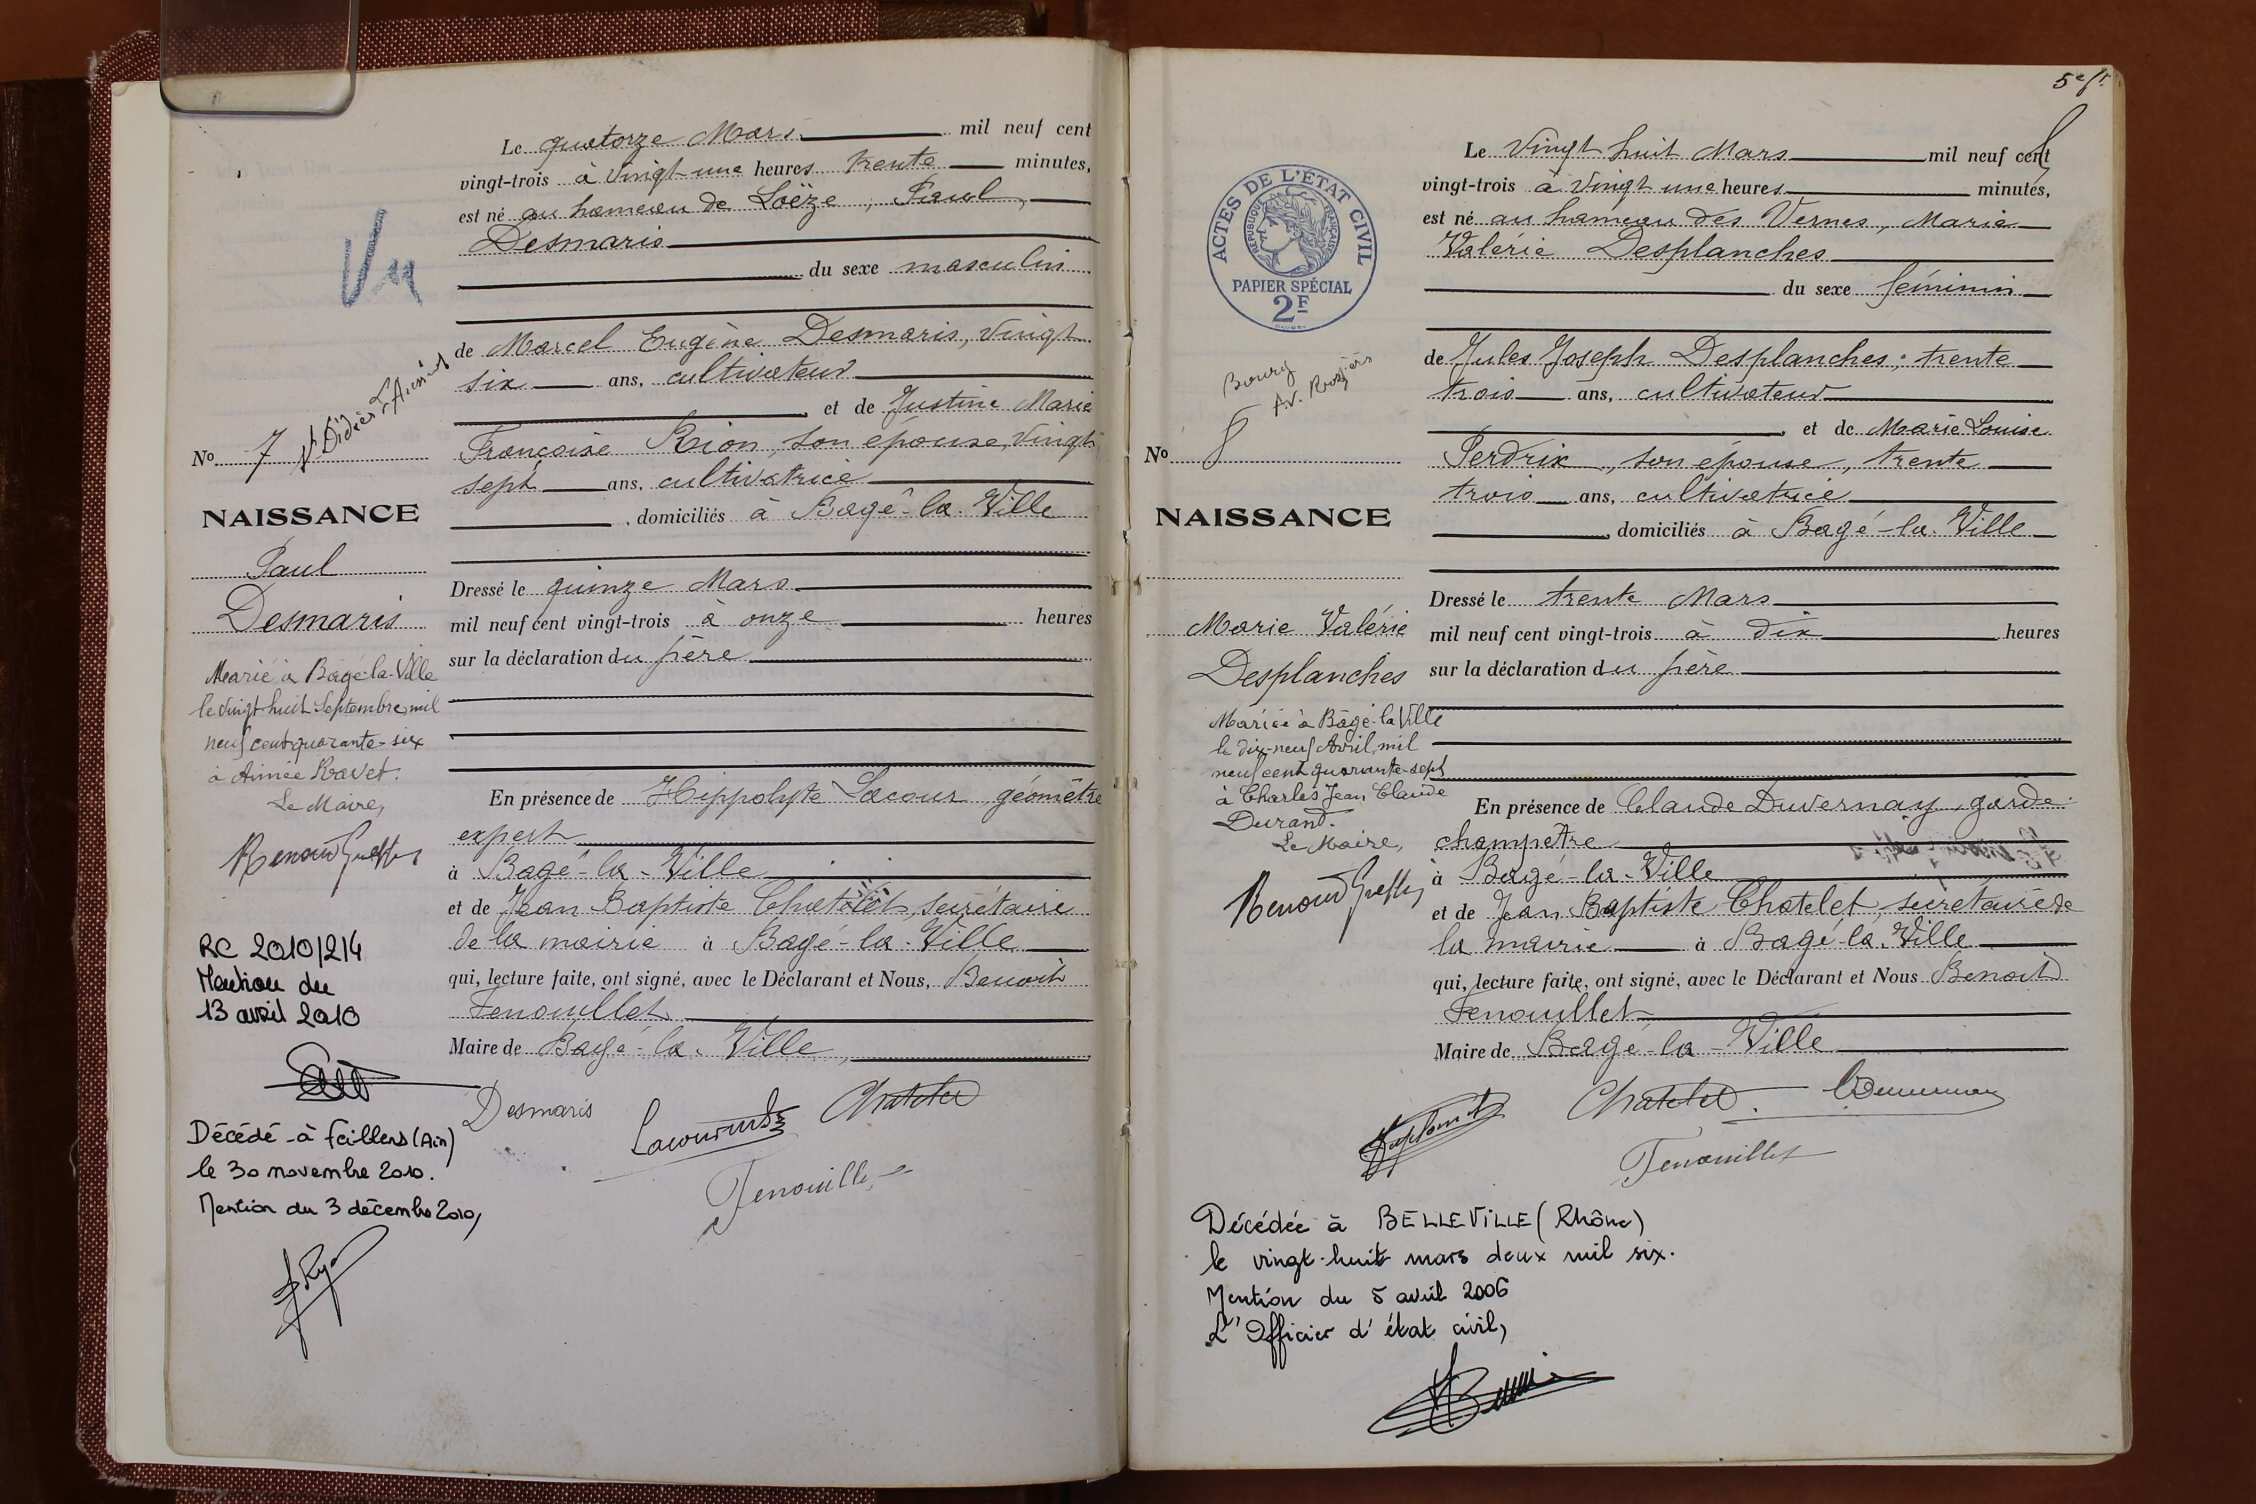 Le quatorze Mars mil neuf cent
vingt-trois à vingt-une heures trente minutes,
est né au hameau de Loëze, Paul,
Desmaris
du sexe masculin
de Marcel Eugène Desmaris, vingt
six ans, cultivateur
et de Justine Marie
Françoise Rion, son épouse, vingt
sept ans, cultivatrice
domiciliés à Bagé-la-Ville
Dressé le quinze Mars
mil neuf cent vingt-trois à onze heures
sur la déclaration du père
En présence de Hippolyte Lacour, géomètre
expert
à Bagé-la-Ville
et de Jean Baptiste Chatelet, secrétaire
de la mairie à Bagé-la-Ville
qui, lecture faite, ont signé, avec le Déclarant et Nous, Benoit
Fenouillet
Maire de Bagé-la-Ville,
Desmaris
Chatelet
Fenouillet
Vu
No 7
St Didier
NAISSANCE
Paul
Desmaris
Marié à Bagé-la-Ville
le vingt huit Septembre mil
neuf cent quarante-six
à Aimée Ravet.
Le Maire,
RC 2010/214
Mention du
13 avril 2010
Décédé à Feillens (Ain)
le 30 novembre 2010.
Mention du 3 décembre 2010,
5e ft
ACTES DE L'ÉTAT CIVIL
RÉPUBLIQUE FRANÇAISE
PAPIER SPÉCIAL
2F
Bourg
Av. Rosiers
No 8
NAISSANCE
Marie Valérie
Desplanches
Mariée à Bâgé-la-Ville
le dix-neuf Avril mil
neuf cent quarante-sept
à Charles Jean Claude
Durand.
Le Maire,
Le vingt huit Mars mil neuf cent
vingt-trois à vingt une heures minutes,
est né au hameau des Vernes, Marie
Valérie Desplanches
du sexe féminin
de Jules Joseph Desplanches, trente
trois ans, cultivateur
et de Marie Louise
Perdrix, son épouse, trente
trois ans, cultivatrice
domiciliés à Bagé-la-Ville
Dressé le trente Mars
mil neuf cent vingt-trois à dix heures
sur la déclaration du père
En présence de Claude Duvernay, garde
champêtre
à Bagé-la-Ville
et de Jean Baptiste Chatelet, secrétaire de
la mairie à Bagé-la-Ville
qui, lecture faite, ont signé, avec le Déclarant et Nous Benoit
Fenouillet
Maire de Bagé-la-Ville
Chatelet
Fenouillet
Décédée à BELLEVILLE (Rhône)
le vingt-huit mars deux mil six.
Mention du 5 avril 2006
L'Officier d'état civil,